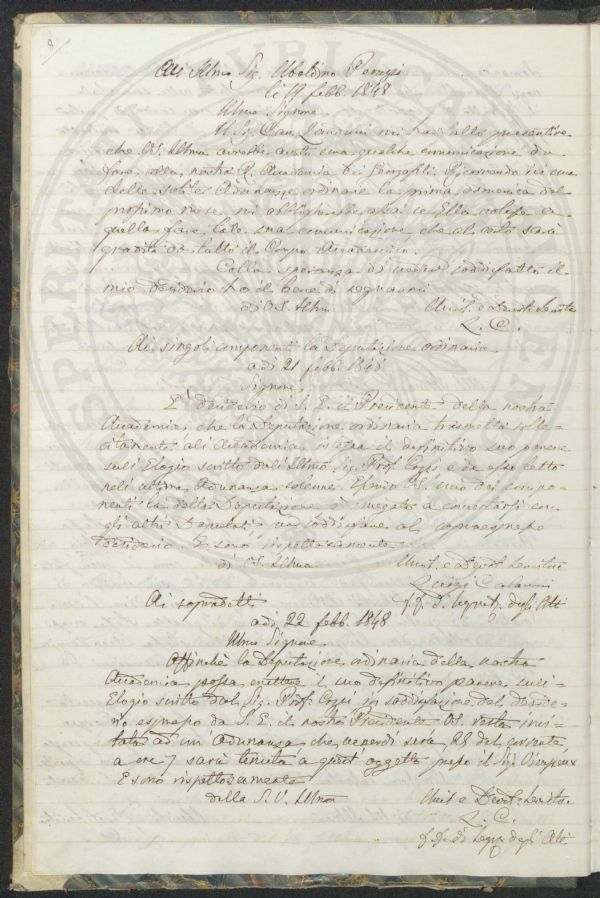 8
All Illmo Sig. Ubaldino Peruzzi
li 19 febb. 1848
Illmo Signore.
Il Sig. Cav. mi ha fatto presentire
che VS. Illma avrebbe avuto una qualche comunicazione da
fare alla nostra R. Accademia dei Georgofili. Ricorrendo ivi una
delle solite Adunanze ordinarie la prima domenica del
prossimo mese, mi obbligherebbe assai se Ella volesse a
quella fare tale sua comunicazione, che al certo sarà
gradita da tutto il Corpo Accademico.
Colla speranza di vedere soddisfatto il
mio desiderio ho il bene di segnarmi
di VS. Illma Umil. e Devot. Servitore
L. C.
Ai singoli componenti la Deputazione ordinaria
a dì 21 febb. 1848
Signore.
È desiderio di S. E. il Presidente della nostra
Accademia, che la Deputazione ordinaria trasmetta solle=
citamente all' Accademia stessa il definitivo suo parere
sull' Elogio scritto dall' Illmo Sig. Prof. Cozzi e da esso letto
nell' ultima Adunanza solenne. Essendo VS. uno dei compo=
nenti la detta Deputazione è pregato a concertarsi con
gli altri Deputati per soddisfare al sopraespresso
desiderio. E sono rispettosamente
di VS. Illma Umil. e Devot. Servitore
Luigi Calamai
ff. di Segret. degli Atti
Ai sopradetti
a dì 22 febb. 1848
Illmo Signore.
Affinchè la Deputazione ordinaria della nostra
Accademia possa emettere il suo definitivo parere sull'=
Elogio scritto dal Sig. Prof. Cozzi in sodisfazione del deside=
rio espresso da S. E. il nostro Presidente VS. resta invi=
tata ad un adunanza che venerdì sera 25 del corrente
a ore 7 sarà tenuta a quest' oggetto presso il Sig. Vicepres.
E sono rispettosamente
della S. V. Illma Umil. e Devot. Servitore
L. C.
ff. di Segr. degli Atti